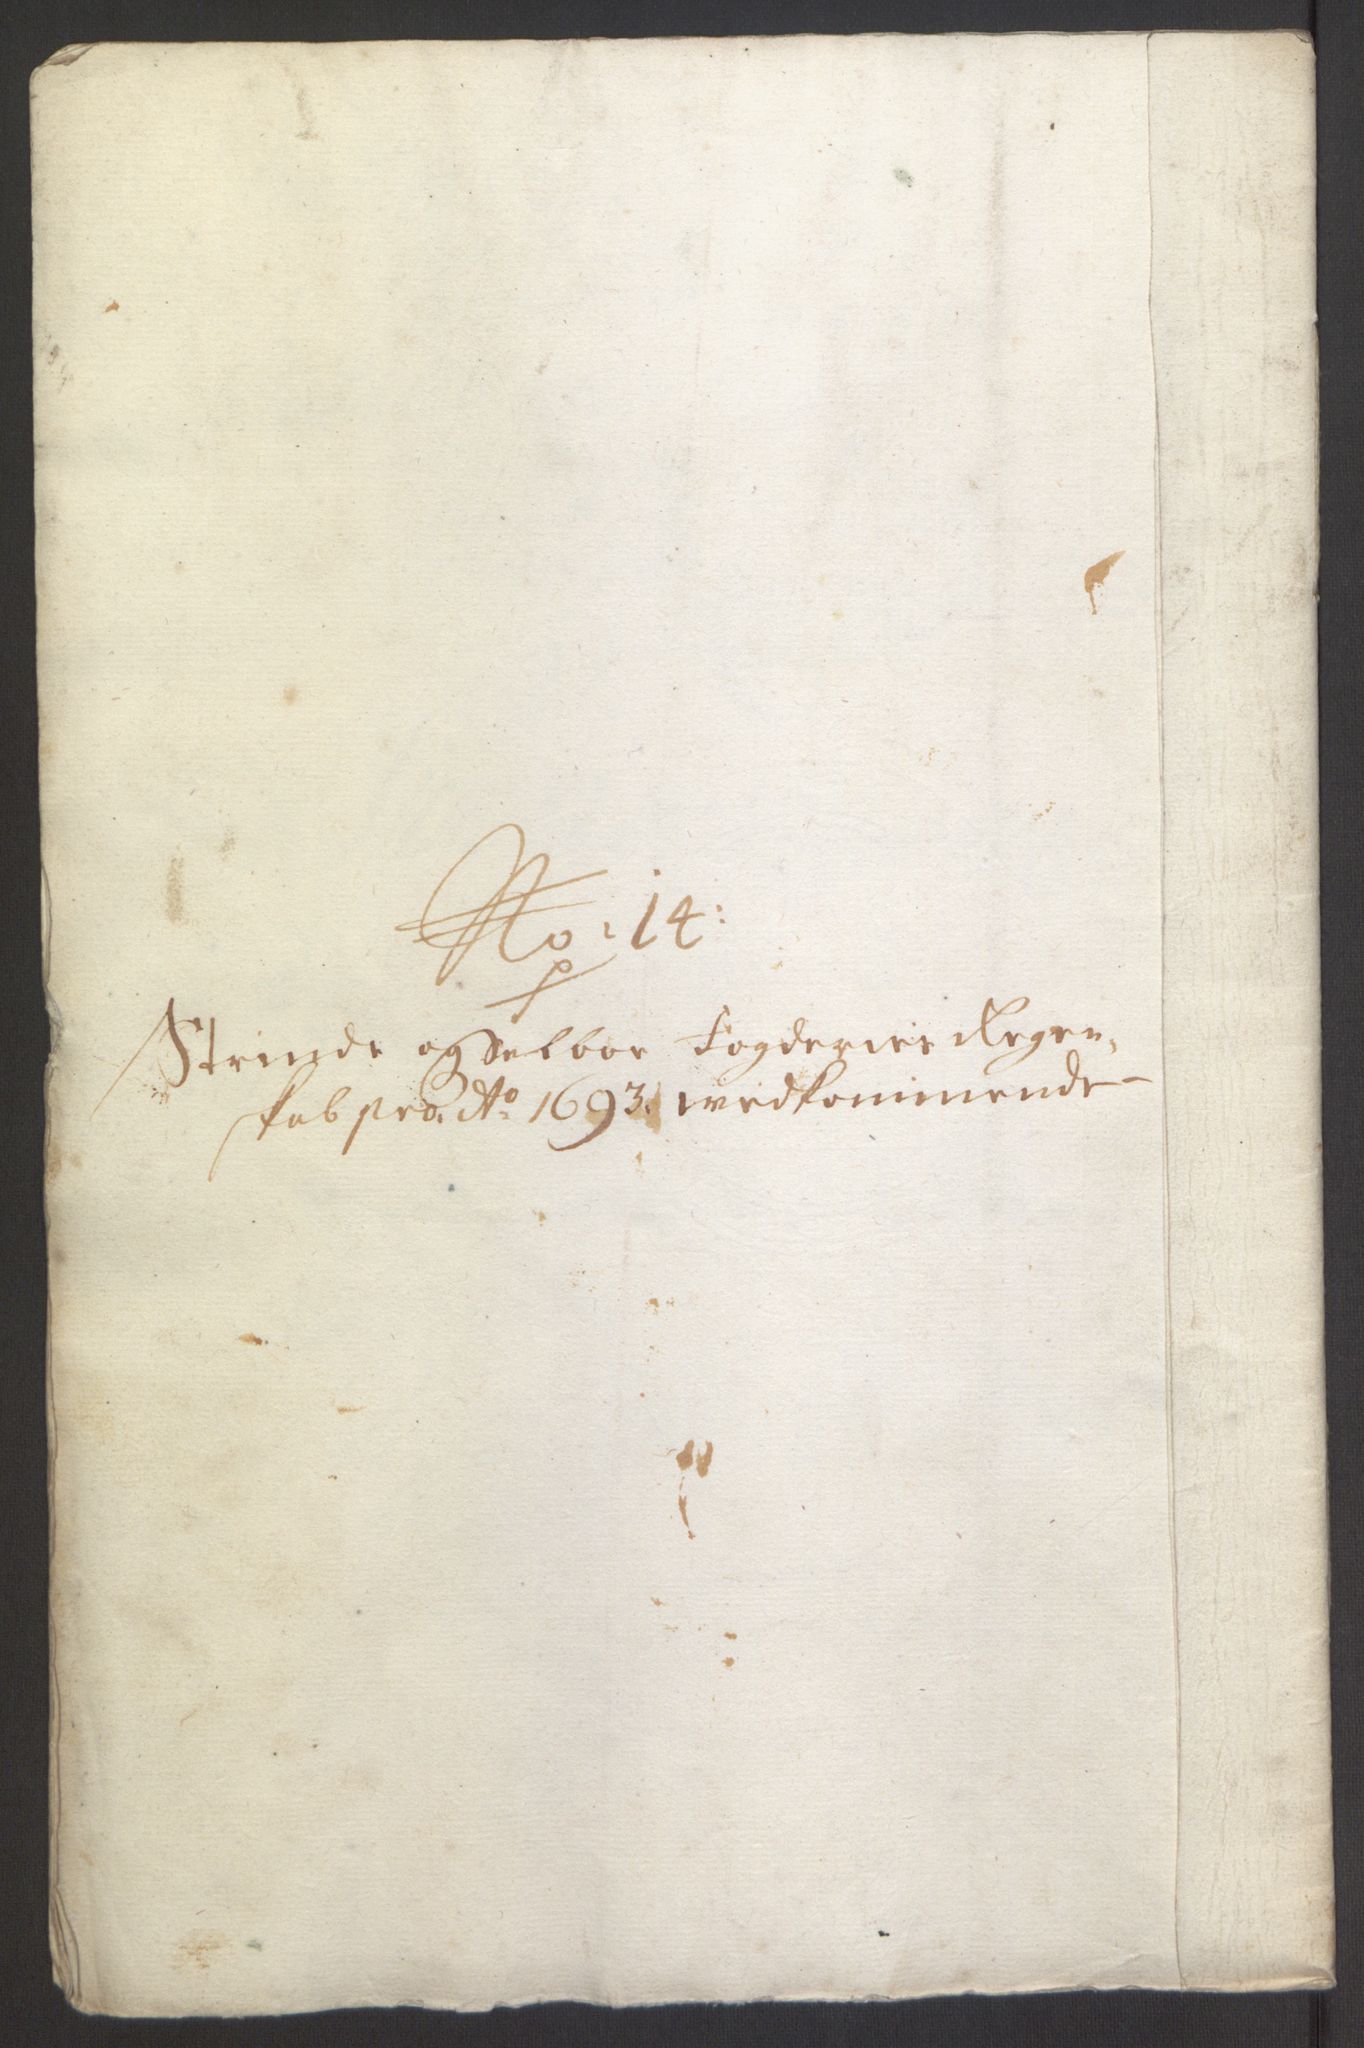 No: 14:
Strinde og Selboe Fogderies Regen,
skab pro. Ao 1693. wedkommende